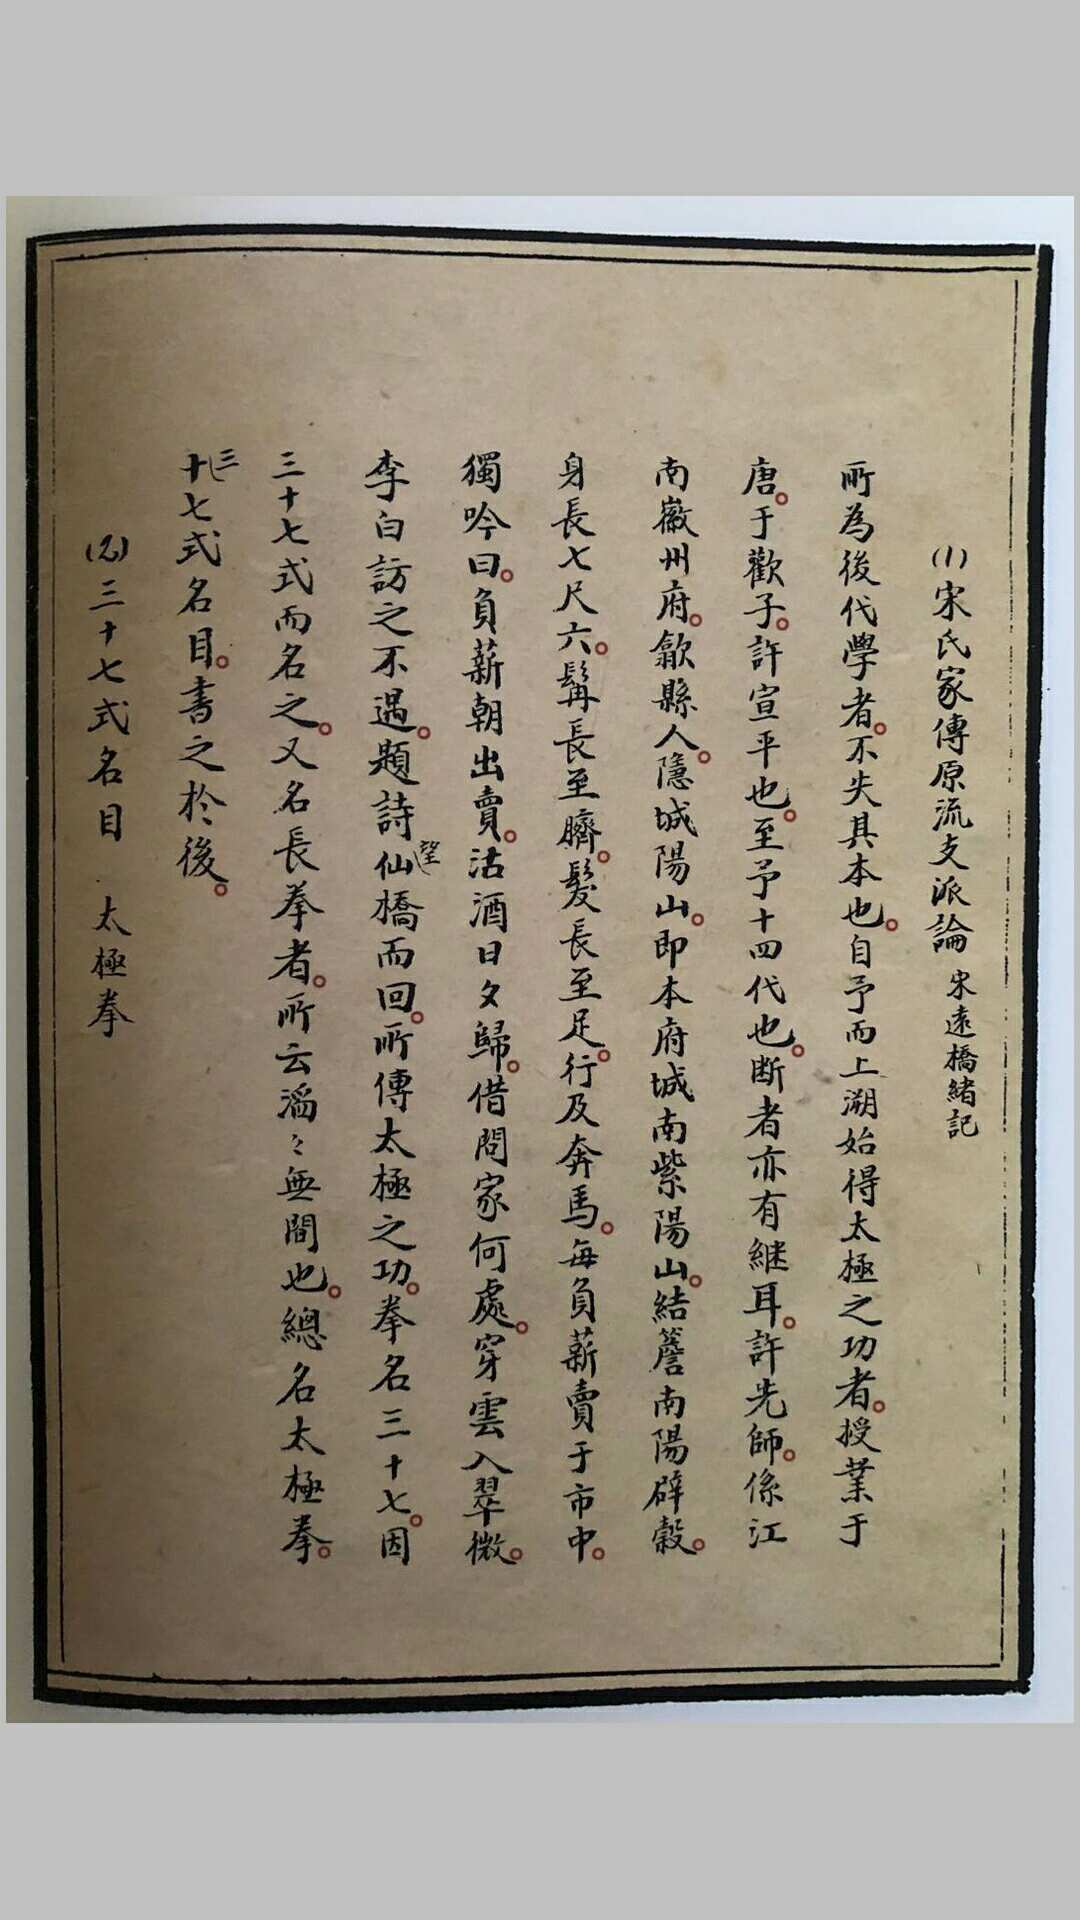 (1)宋氏家傳原流支派論 宋遠橋緒記
所為後代學者。不失其本也。自予而上溯始得太極之功者。授業于
唐。于歡子。許宣平也。至予十四代也。断者亦有継耳。許先師。係江
南徽州府。歙縣人。隱城陽山。即本府城南紫陽山。結簷南陽辟穀。
身長七尺六。髯長至臍。髮長至足。行及奔馬。每負薪賣于市中。
獨吟曰。負薪朝出賣。沽酒日夕歸。借問家何處。穿雲入翠微。
李白訪之不遇。題詩望仙橋而回。所傳太極之功。拳名三十七。因
三十七式而名之。又名長拳者。所云滔々無間也。總名太極拳。
三十七式名目。書之於後。
(2)三十七式名目 太極拳